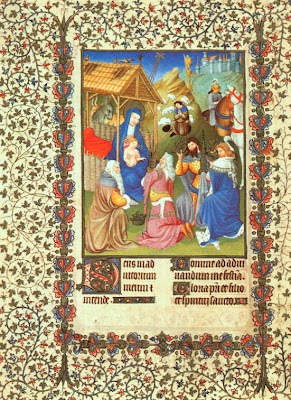 Deus in ad
iutorium
meum i
intende
Domine ad adiu
uandum me festia
Gloria pri et filio
et spiritui sancto